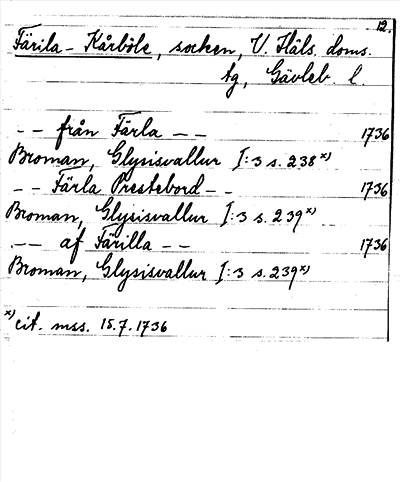 12.
Färila-Kårböle, socken, V. Häls. doms.
tg, Gävleb. l.
-- från Färla -- 1736
Broman, Glysisvallur I:3 s. 238 x)
-- Färla Prestebord -- 1736
Broman, Glysisvallur I:3 s. 239 x)
-- af Färilla -- 1736
Broman, Glysisvallur I:3 s. 239 x)
x) cit. mss. 15.7.1736